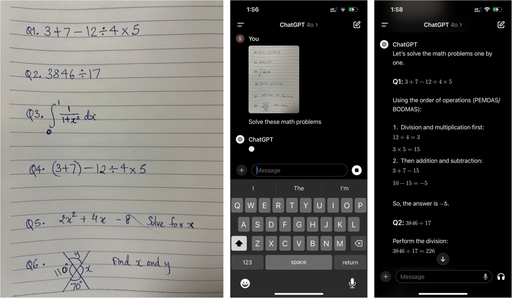 Q1. 3+7-12÷4×5
Q2. 3846÷17
Q3. ∫₀¹ 1/(1+x²) dx
Q4. (3+7)-12÷4×5
Q5. 2x² + 4x - 8 Solve for x
Q6. y 110° x 70° Find x and y
1:56
ChatGPT 4o >
You
Solve these math problems
ChatGPT
Message
I The I'm
Q W E R T Y U I O P
A S D F G H J K L
Z X C V B N M
123 space return
1:58
ChatGPT 4o >
ChatGPT
Let's solve the math problems one by
one.
Q1: 3 + 7 − 12 ÷ 4 × 5
Using the order of operations (PEMDAS/
BODMAS):
1. Division and multiplication first:
12 ÷ 4 = 3
3 × 5 = 15
2. Then addition and subtraction:
3 + 7 − 15
10 − 15 = −5
So, the answer is −5.
Q2: 3846 ÷ 17
Perform the division:
3846 ÷ 17 ≈ 226
Message